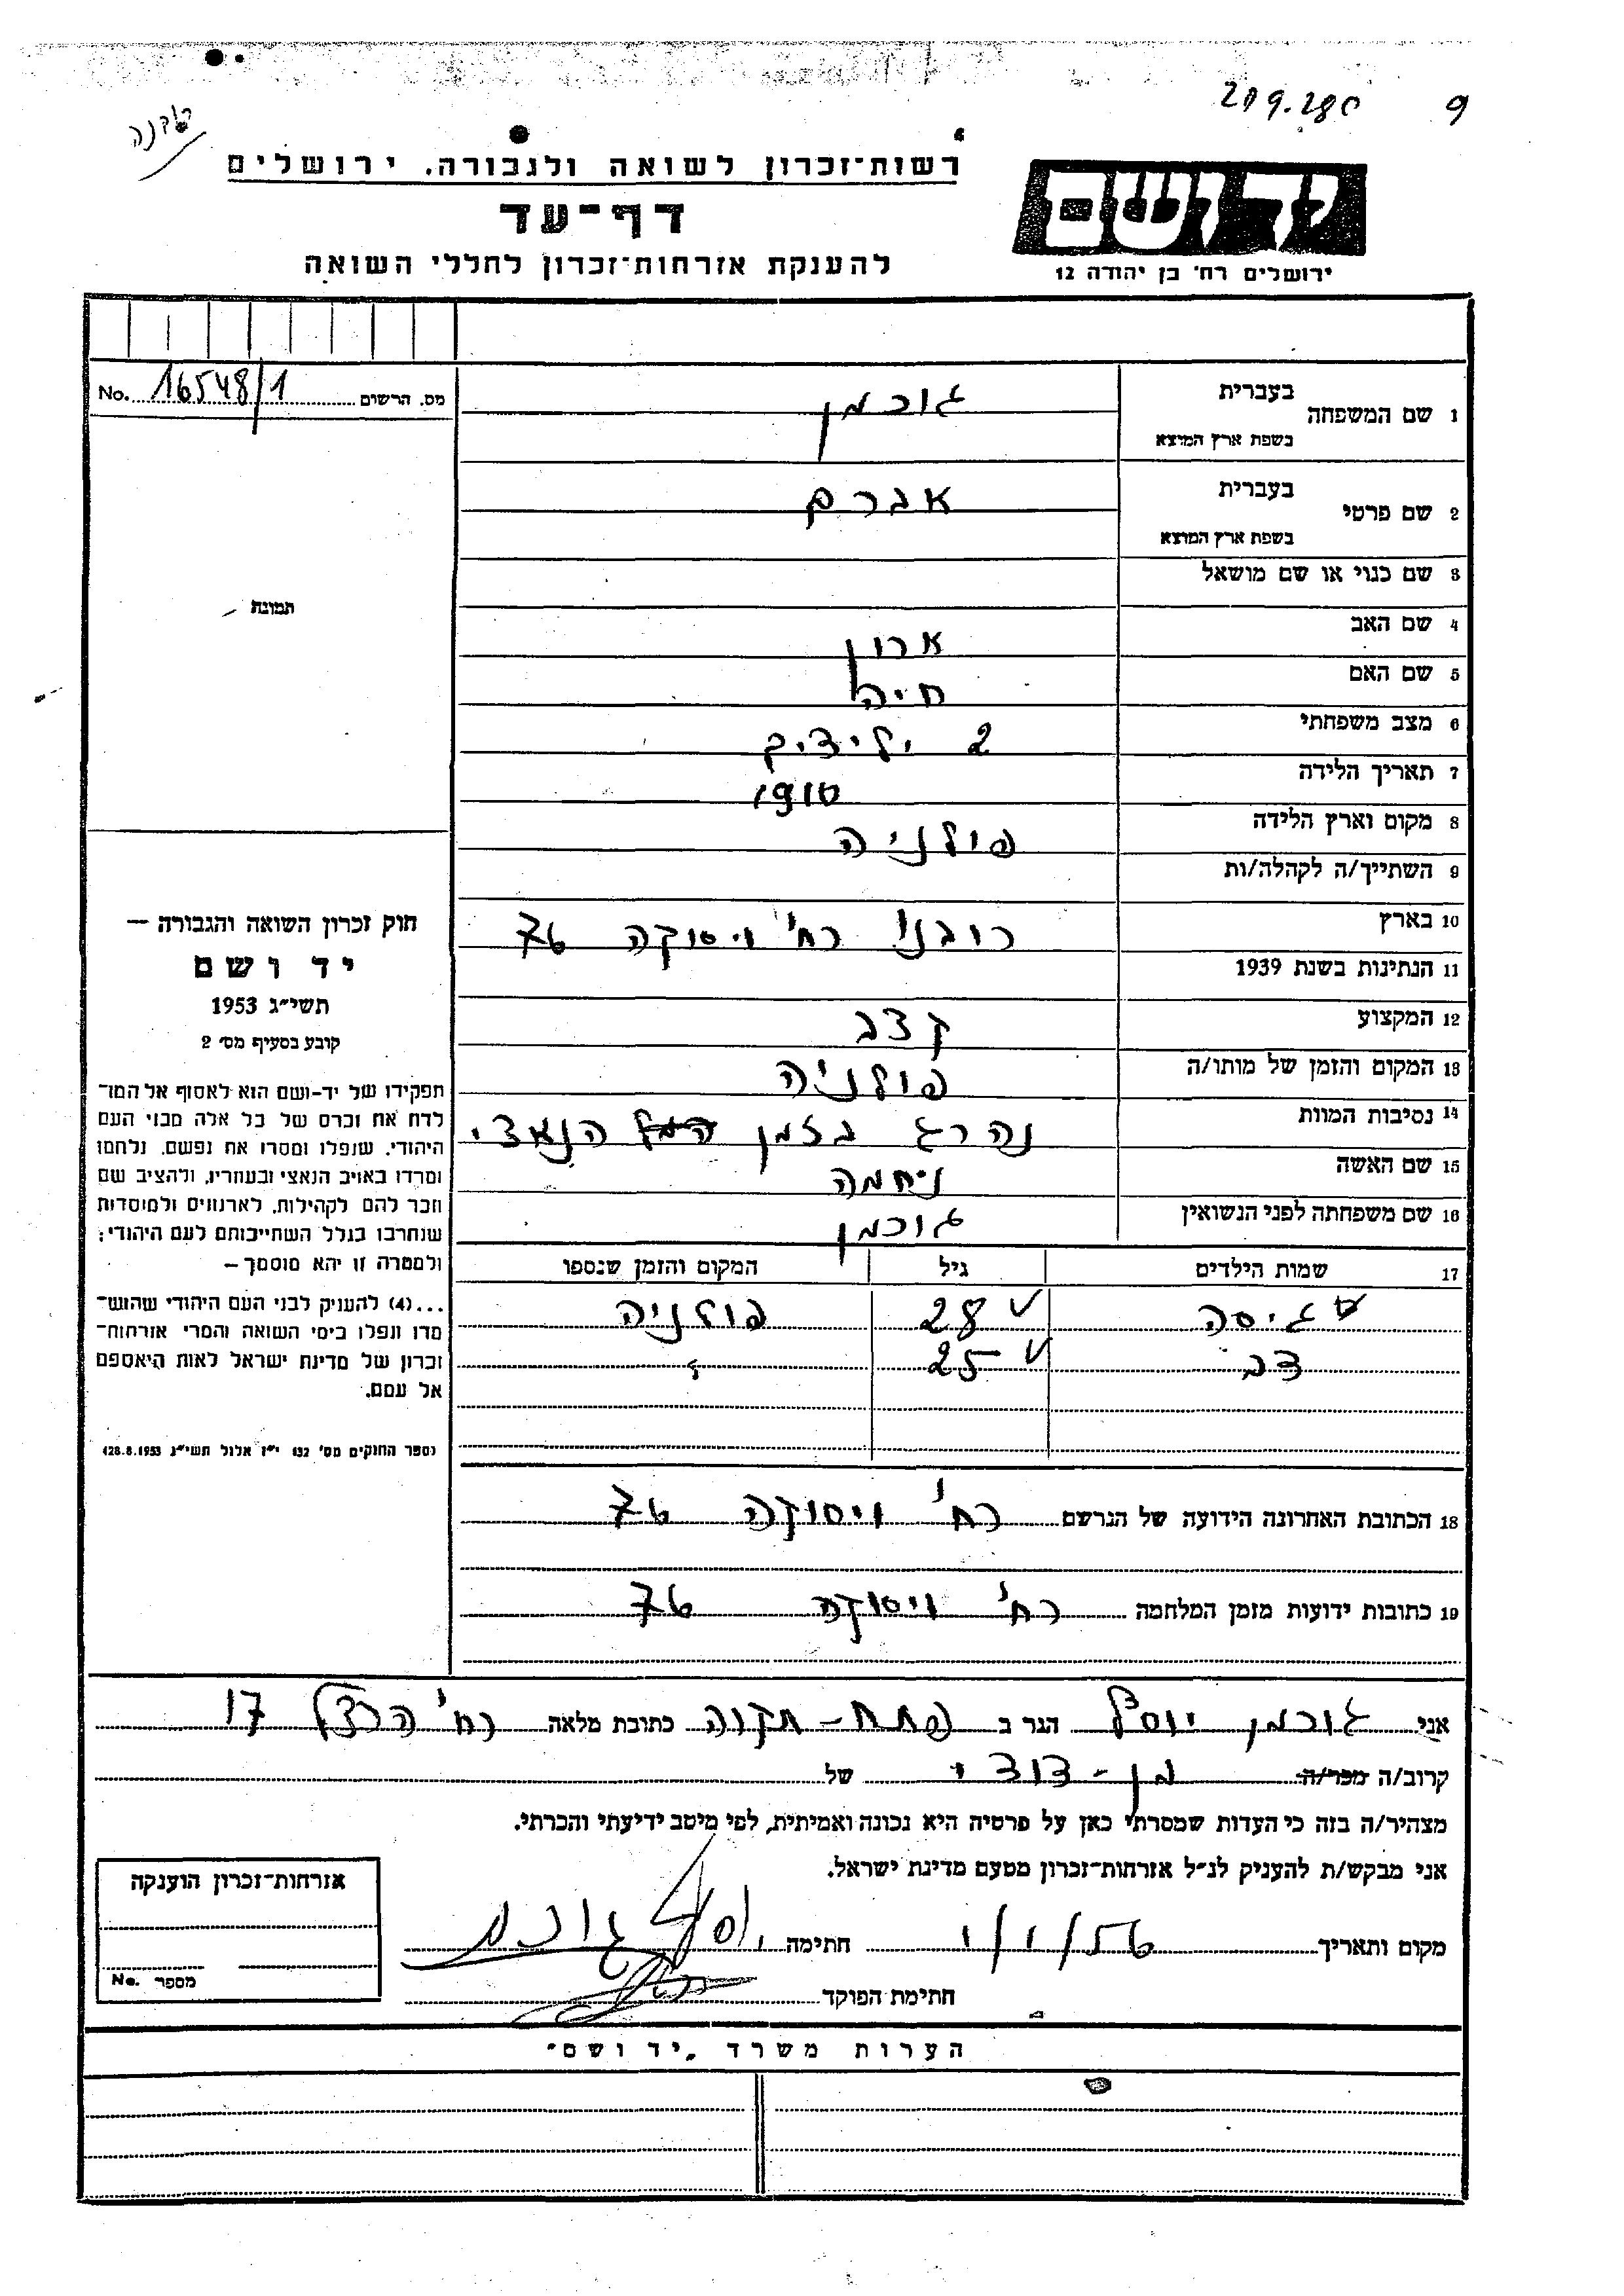 209.280 9
רשות־זכרון לשואה ולגבורה, ירושלים
יד ושם
דף־עד
להענקת אזרחות־זכרון לחללי השואה
ירושלים רח' בן יהודה 12
מס. הרשום 16548/1 No.
1 שם המשפחה בעברית גוכמן
בשפת ארץ המוצא
2 שם פרטי בעברית אברם
בשפת ארץ המוצא
3 שם כנוי או שם מושאל
תמונה
4 שם האב ארון
5 שם האם חיה
6 מצב משפחתי 2 ילידים
7 תאריך הלידה 1910
8 מקום וארץ הלידה פולניה
9 השתייך/ה לקהלה/ות
10 בארץ רובני רח' ויסוקה 76
11 הנתינות בשנת 1939
12 המקצוע קצב
13 המקום והזמן של מותו/ה פולניה
14 נסיבות המוות נהרג בזמן הנאצי
15 שם האשה ניחמה
16 שם משפחתה לפני הנשואין גוכמן
17 שמות הילדים גיל המקום והזמן שנספו
גיסה 28 פולניה
דב 25 "
חוק זכרון השואה והגבורה —
יד ושם
תשי"ג 1953
קובע בסעיף מס' 2
תפקידו של יד-ושם הוא לאסוף אל המו־
לדת את זכרם של כל אלה מבני העם
היהודי, שנפלו ומסרו את נפשם, נלחמו
ומרדו באויב הנאצי ובעוזריו, ולהציב שם
וזכר להם לקהילות, לארגונים ולמוסדות
שנחרבו בגלל השתייכותם לעם היהודי;
ולמטרה זו יהא מוסמך —
...(4) להעניק לבני העם היהודי שהוש־
מדו ונפלו בימי השואה והמרי אזרחות־
זכרון של מדינת ישראל לאות היאספם
אל עמם.
(ספר החוקים מס' 132 י"ז אלול תשי"ג 28.8.1953)
18 הכתובת האחרונה הידועה של הנרשם רח' ויסוקה 76
19 כתובות ידועות מזמן המלחמה רח' ויסוקה 76
אני גוכמן יוסף הגר ב פתח-תקוה כתובת מלאה רח' הרצל 17
קרוב/ה מכר/ה מן-דודי של
מצהיר/ה בזה כי העדות שמסרתי כאן על פרטיה היא נכונה ואמיתית, לפי מיטב ידיעתי והכרתי.
אני מבקש/ת להעניק לנ"ל אזרחות־זכרון מטעם מדינת ישראל.
מקום ותאריך 1/1/56 חתימה יוסף גוכמן
חתימת הפוקד
אזרחות־זכרון הוענקה
מספר No.
הערות משרד „יד ושם"